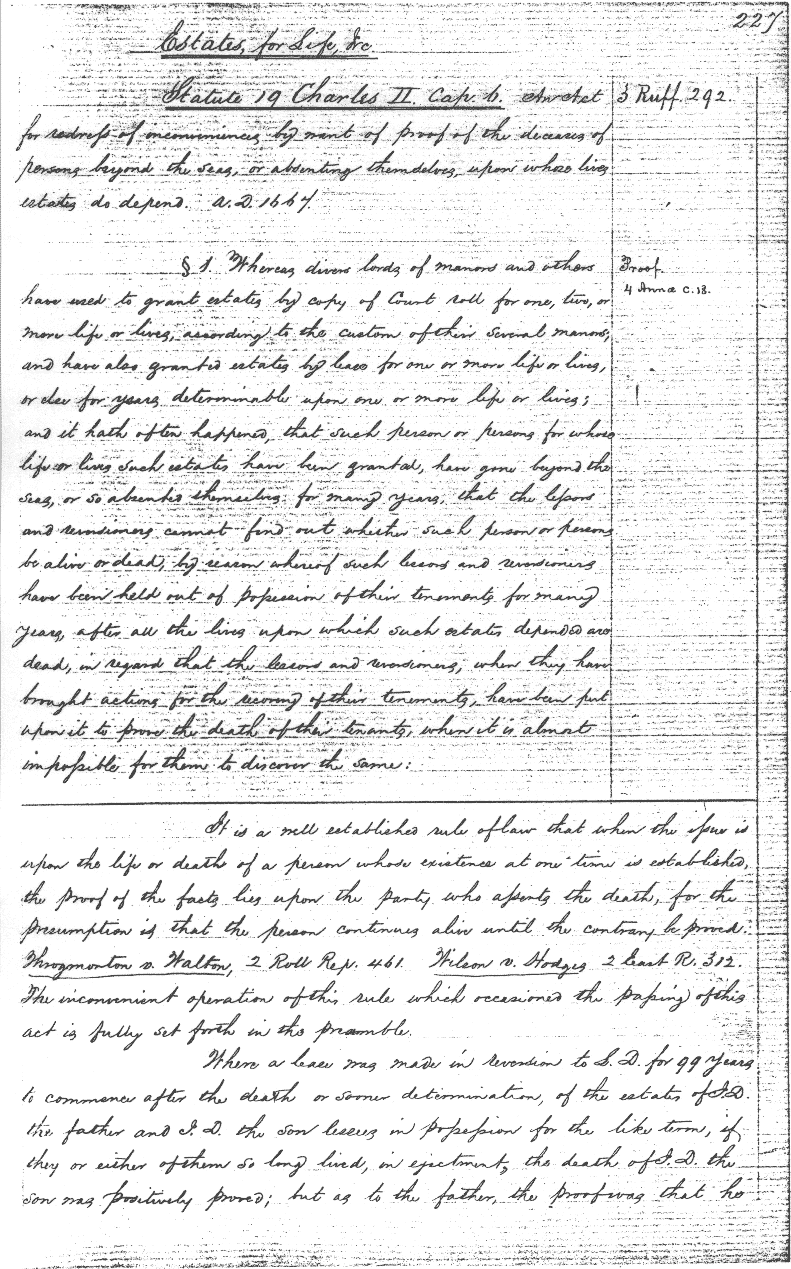 227
Estates, for Life, &c
Statute 19 Charles II. Cap. 6. An Act
3 Ruff. 292.
for redress of inconveniences by want of proof of the deceases of
persons beyond the seas, or absenting themselves, upon whose lives
estates do depend. A.D. 1667.
§ 1. Whereas divers lords of manors and others
Proof.
4 Annæ c. 18.
have used to grant estates by copy of Court roll for one, two, or
more life or lives, according to the custom of their several manors,
and have also granted estates by lease for one or more life or lives,
or else for years determinable upon one or more life or lives;
and it hath often happened, that such person or persons for whose
life or lives such estates have been granted, have gone beyond the
seas, or so absented themselves for many years, that the lessors
and reversioners cannot find out whether such person or persons
be alive or dead, by reason whereof such lessors and reversioners
have been held out of possession of their tenements for many
years, after all the lives upon which such estates depended are
dead, in regard that the lessors and reversioners, when they have
brought actions for the recovery of their tenements, have been put
upon it to prove the death of their tenants, when it is almost
impossible for them to discover the same:
It is a well established rule of law that when the issue is
upon the life or death of a person whose existence at one time is established,
the proof of the facts lies upon the party who asserts the death, for the
presumption is that the person continues alive until the contrary be proved.
Throgmorton v. Walton, 2 Roll Rep. 461. Wilson v. Hodges 2 East R. 312.
The inconvenient operation of this rule which occasioned the passing of this
act is fully set forth in the preamble.
Where a lease was made in reversion to S. D. for 99 years
to commence after the death or sooner determination, of the estates of I. D.
the father and I. D. the son lessees in possession for the like term, if
they or either of them so long lived, in ejectment, the death of I. D. the
son was positively proved; but as to the father, the proof was that he